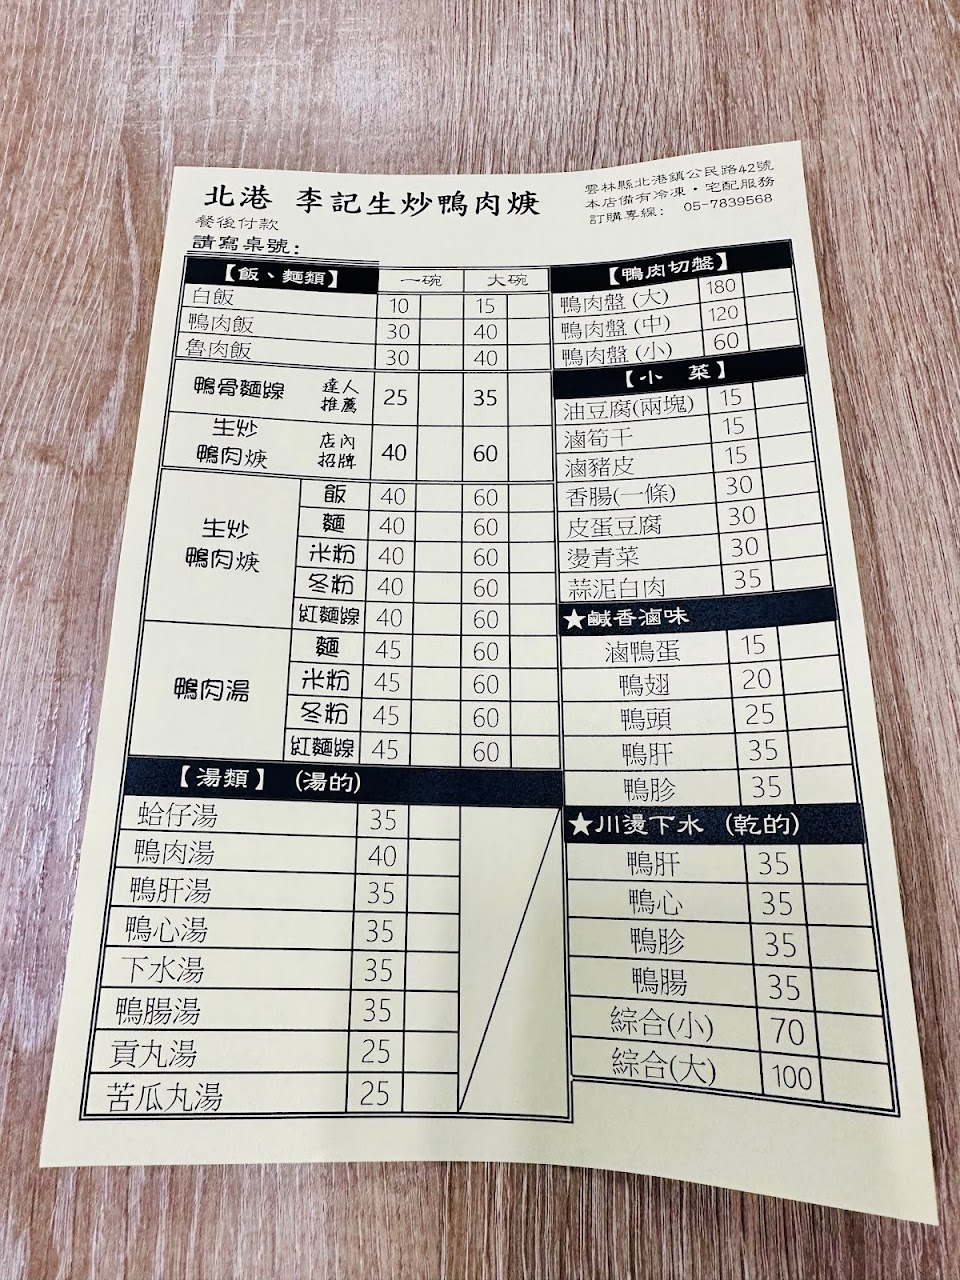 北港 李記生炒鴨肉焿
雲林縣北港鎮公民路42號
本店備有冷凍・宅配服務
訂購專線: 05-7839568
餐後付款
請寫桌號:
【飯、麵類】 一碗 大碗
白飯 10 15
鴨肉飯 30 40
魯肉飯 30 40
鴨骨麵線 達人推薦 25 35
生炒鴨肉焿 店內招牌 40 60
生炒鴨肉焿
飯 40 60
麵 40 60
米粉 40 60
冬粉 40 60
紅麵線 40 60
鴨肉湯
麵 45 60
米粉 45 60
冬粉 45 60
紅麵線 45 60
【湯類】 (湯的)
蛤仔湯 35
鴨肉湯 40
鴨肝湯 35
鴨心湯 35
下水湯 35
鴨腸湯 35
貢丸湯 25
苦瓜丸湯 25
【鴨肉切盤】
鴨肉盤(大) 180
鴨肉盤(中) 120
鴨肉盤(小) 60
【小 菜】
油豆腐(兩塊) 15
滷筍干 15
滷豬皮 15
香腸(一條) 30
皮蛋豆腐 30
燙青菜 30
蒜泥白肉 35
★鹹香滷味
滷鴨蛋 15
鴨翅 20
鴨頭 25
鴨肝 35
鴨胗 35
★川燙下水 (乾的)
鴨肝 35
鴨心 35
鴨胗 35
鴨腸 35
綜合(小) 70
綜合(大) 100